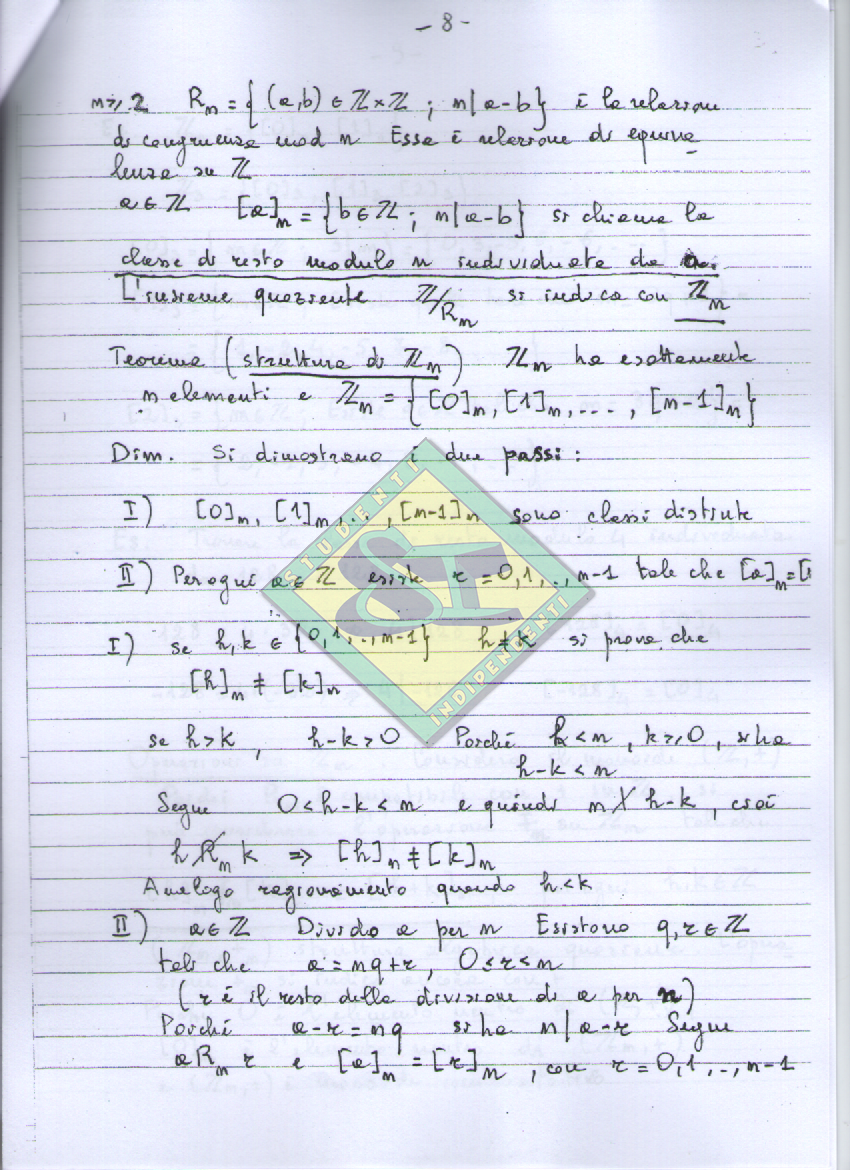 - 8 -
n⩾2 Rₙ = { (a,b) ∈ ℤ×ℤ ; n | a-b } è la relazione
di congruenza mod n Essa è relazione di equiva
lenza su ℤ
a ∈ ℤ [a]ₙ = { b ∈ ℤ ; n | a-b } si chiama la
classe di resto modulo n individuata da a.
L'insieme quoziente ℤ/Rₙ si indica con ℤₙ
Teorema (struttura di ℤₙ) ℤₙ ha esattamente
n elementi e ℤₙ = { [0]ₙ, [1]ₙ, ..., [n-1]ₙ }
Dim. Si dimostrano i due passi :
I) [0]ₙ, [1]ₙ, .., [n-1]ₙ sono classi distinte
II) Per ogni a ∈ ℤ esiste r = 0,1,..,n-1 tale che [a]ₙ=[
I) se h,k ∈ {0,1,..,n-1} h ≠ k si prova che
[h]ₙ ≠ [k]ₙ
se h>k , h-k>0 Poiché h<n , k⩾0 , si ha
h-k<n
Segue 0<h-k<n e quindi n ∤ h-k , cioè
h R̸ₙ k ⇒ [h]ₙ ≠ [k]ₙ
Analogo ragionamento quando h<k
II) a ∈ ℤ Divido a per n Esistono q,r ∈ ℤ
tali che a = nq+r , 0≤r<n
(r è il resto della divisione di a per n)
Poiché a-r = nq si ha n | a-r Segue
a Rₙ r e [a]ₙ = [r]ₙ , con r = 0,1,..,n-1
STUDENTI
INDIPENDENTI